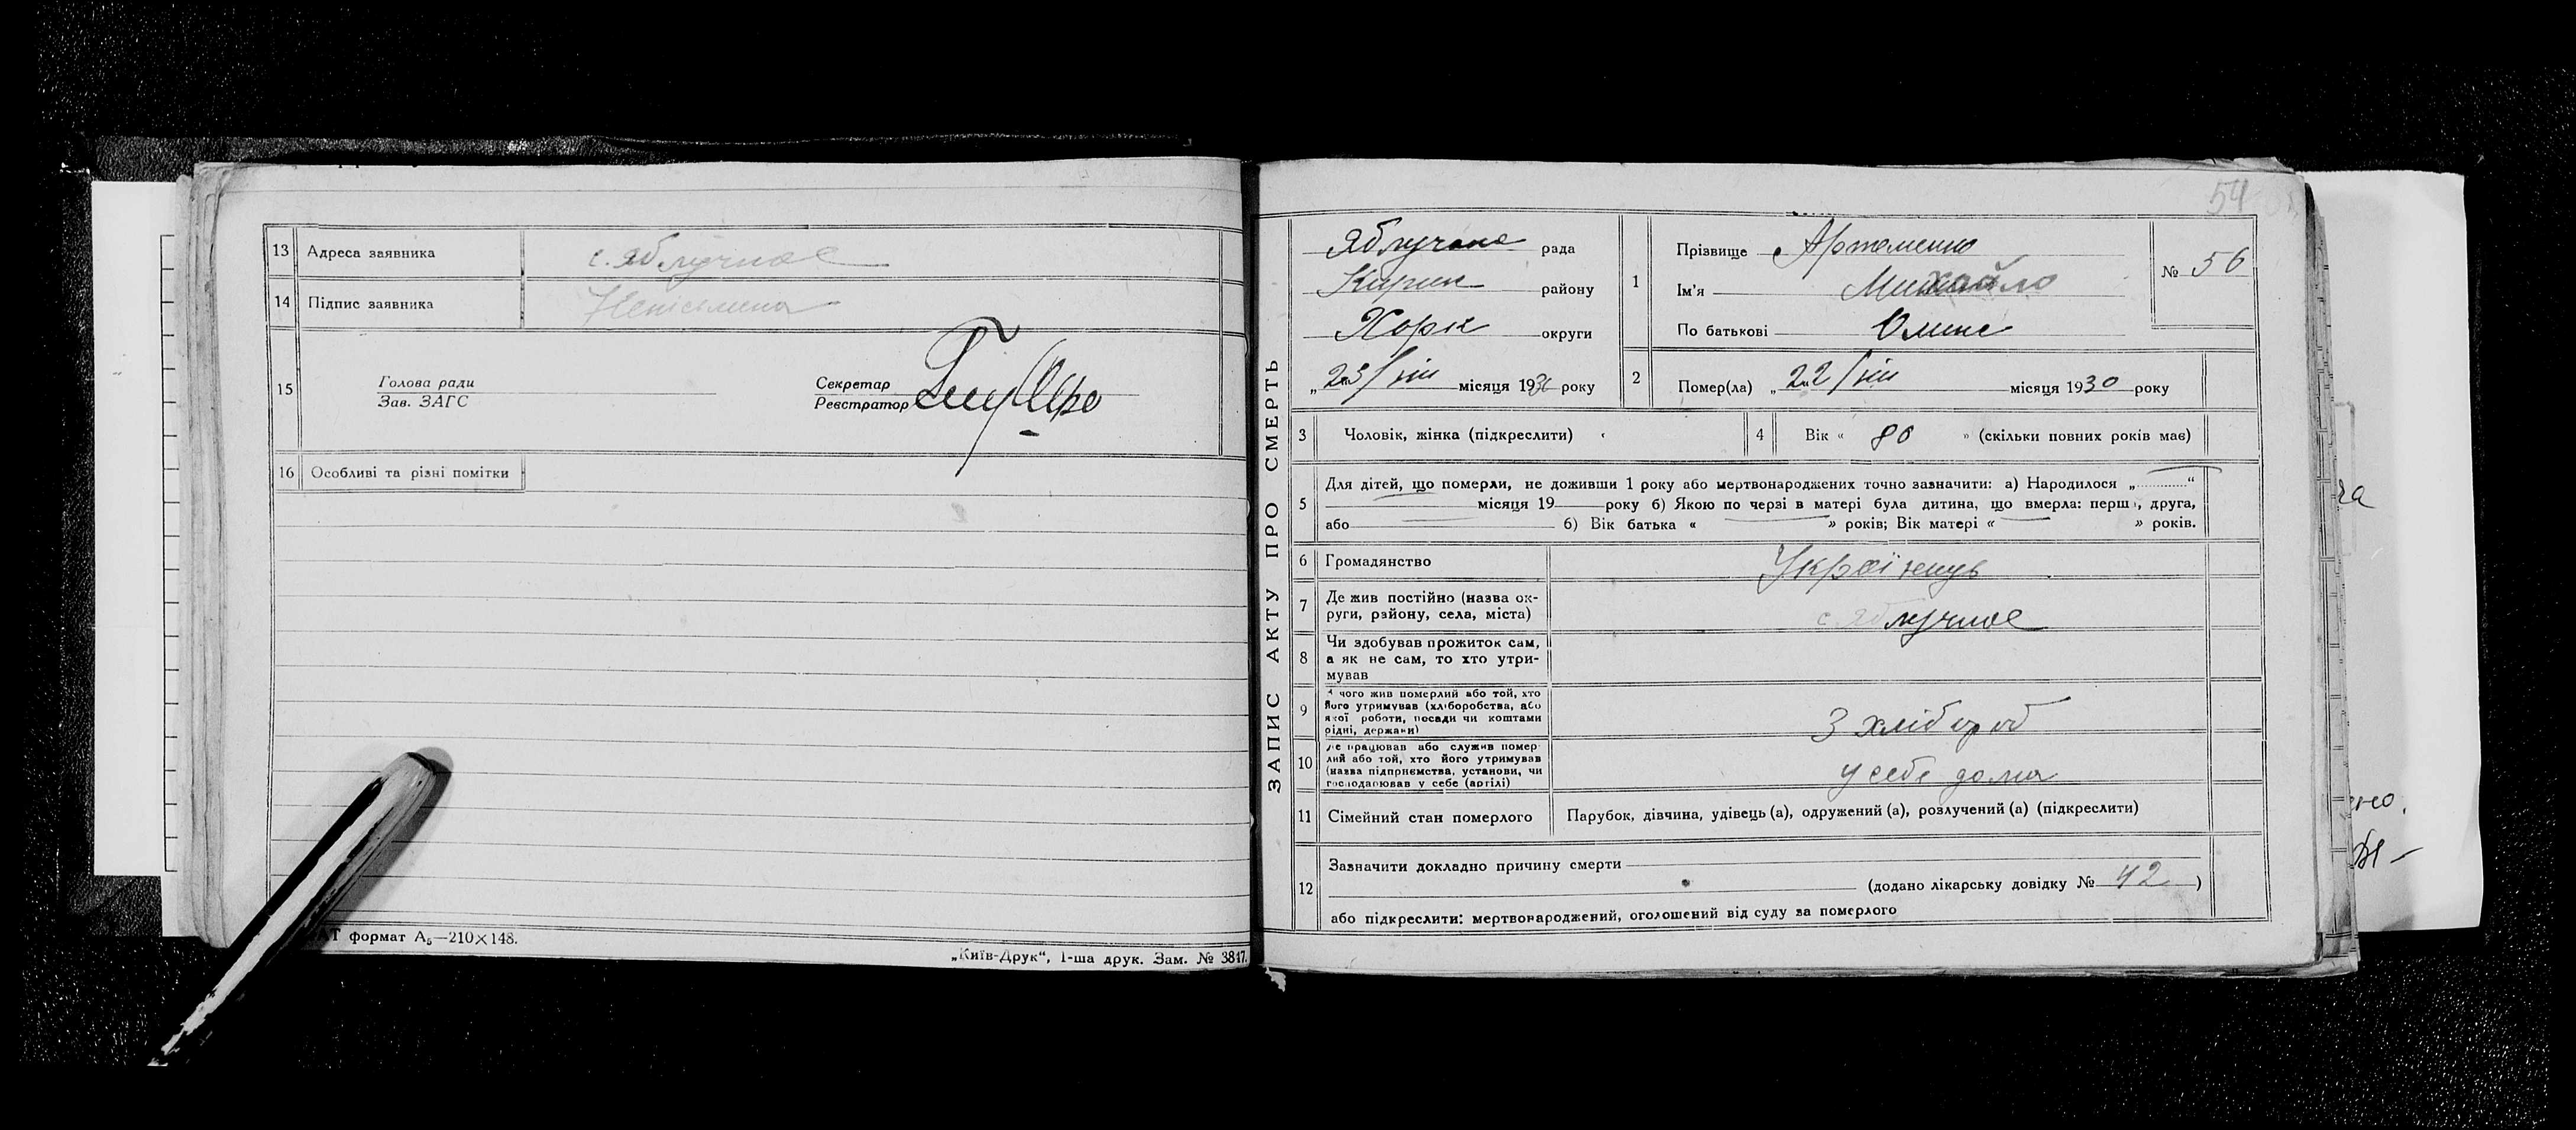 13 Адреса заявника с. Яблучное
14 Підпис заявника Неписьмена
15 Голова ради
Зав. ЗАГС
Секретар
Реєстратор
16 Особливі та різні помітки
АТ формат А₅—210×148.
„Київ-Друк“, 1-ша друк. Зам. № 3817.
54
ЗАПИС АКТУ ПРО СМЕРТЬ
Яблучане рада
району
Харк округи
„23/ місяця 1930 року
1 Прізвище Артеменко
Ім'я Михайло
По батькові
№ 56
2 Помер(ла) „22/ місяця 1930 року
3 Чоловік, жінка (підкреслити)
4 Вік « 80 » (скільки повних років має)
5 Для дітей, що померли, не доживши 1 року або мертвонароджених точно зазначити: а) Народилося „ “
місяця 19 року б) Якою по черзі в матері була дитина, що вмерла: перша, друга,
або б) Вік батька « » років; Вік матері « » років.
6 Громадянство Українець
7 Де жив постійно (назва ок-
руги, району, села, міста) с. Яблучное
8 Чи здобував прожиток сам,
а як не сам, то хто утри-
мував
9 З чого жив померлий або той, хто
його утримував (хліборобства, або
якої роботи, посади чи коштами
рідні, держави) З хлібороб
10 Де працював або служив помер-
лий або той, хто його утримував
(назва підприємства, установи, чи
господарював у себе (артілі) у себе дома
11 Сімейний стан померлого Парубок, дівчина, удівець (а), одружений (а), розлучений (а) (підкреслити)
12 Зазначити докладно причину смерти
(додано лікарську довідку № 42 )
або підкреслити: мертвонароджений, оголошений від суду за померлого